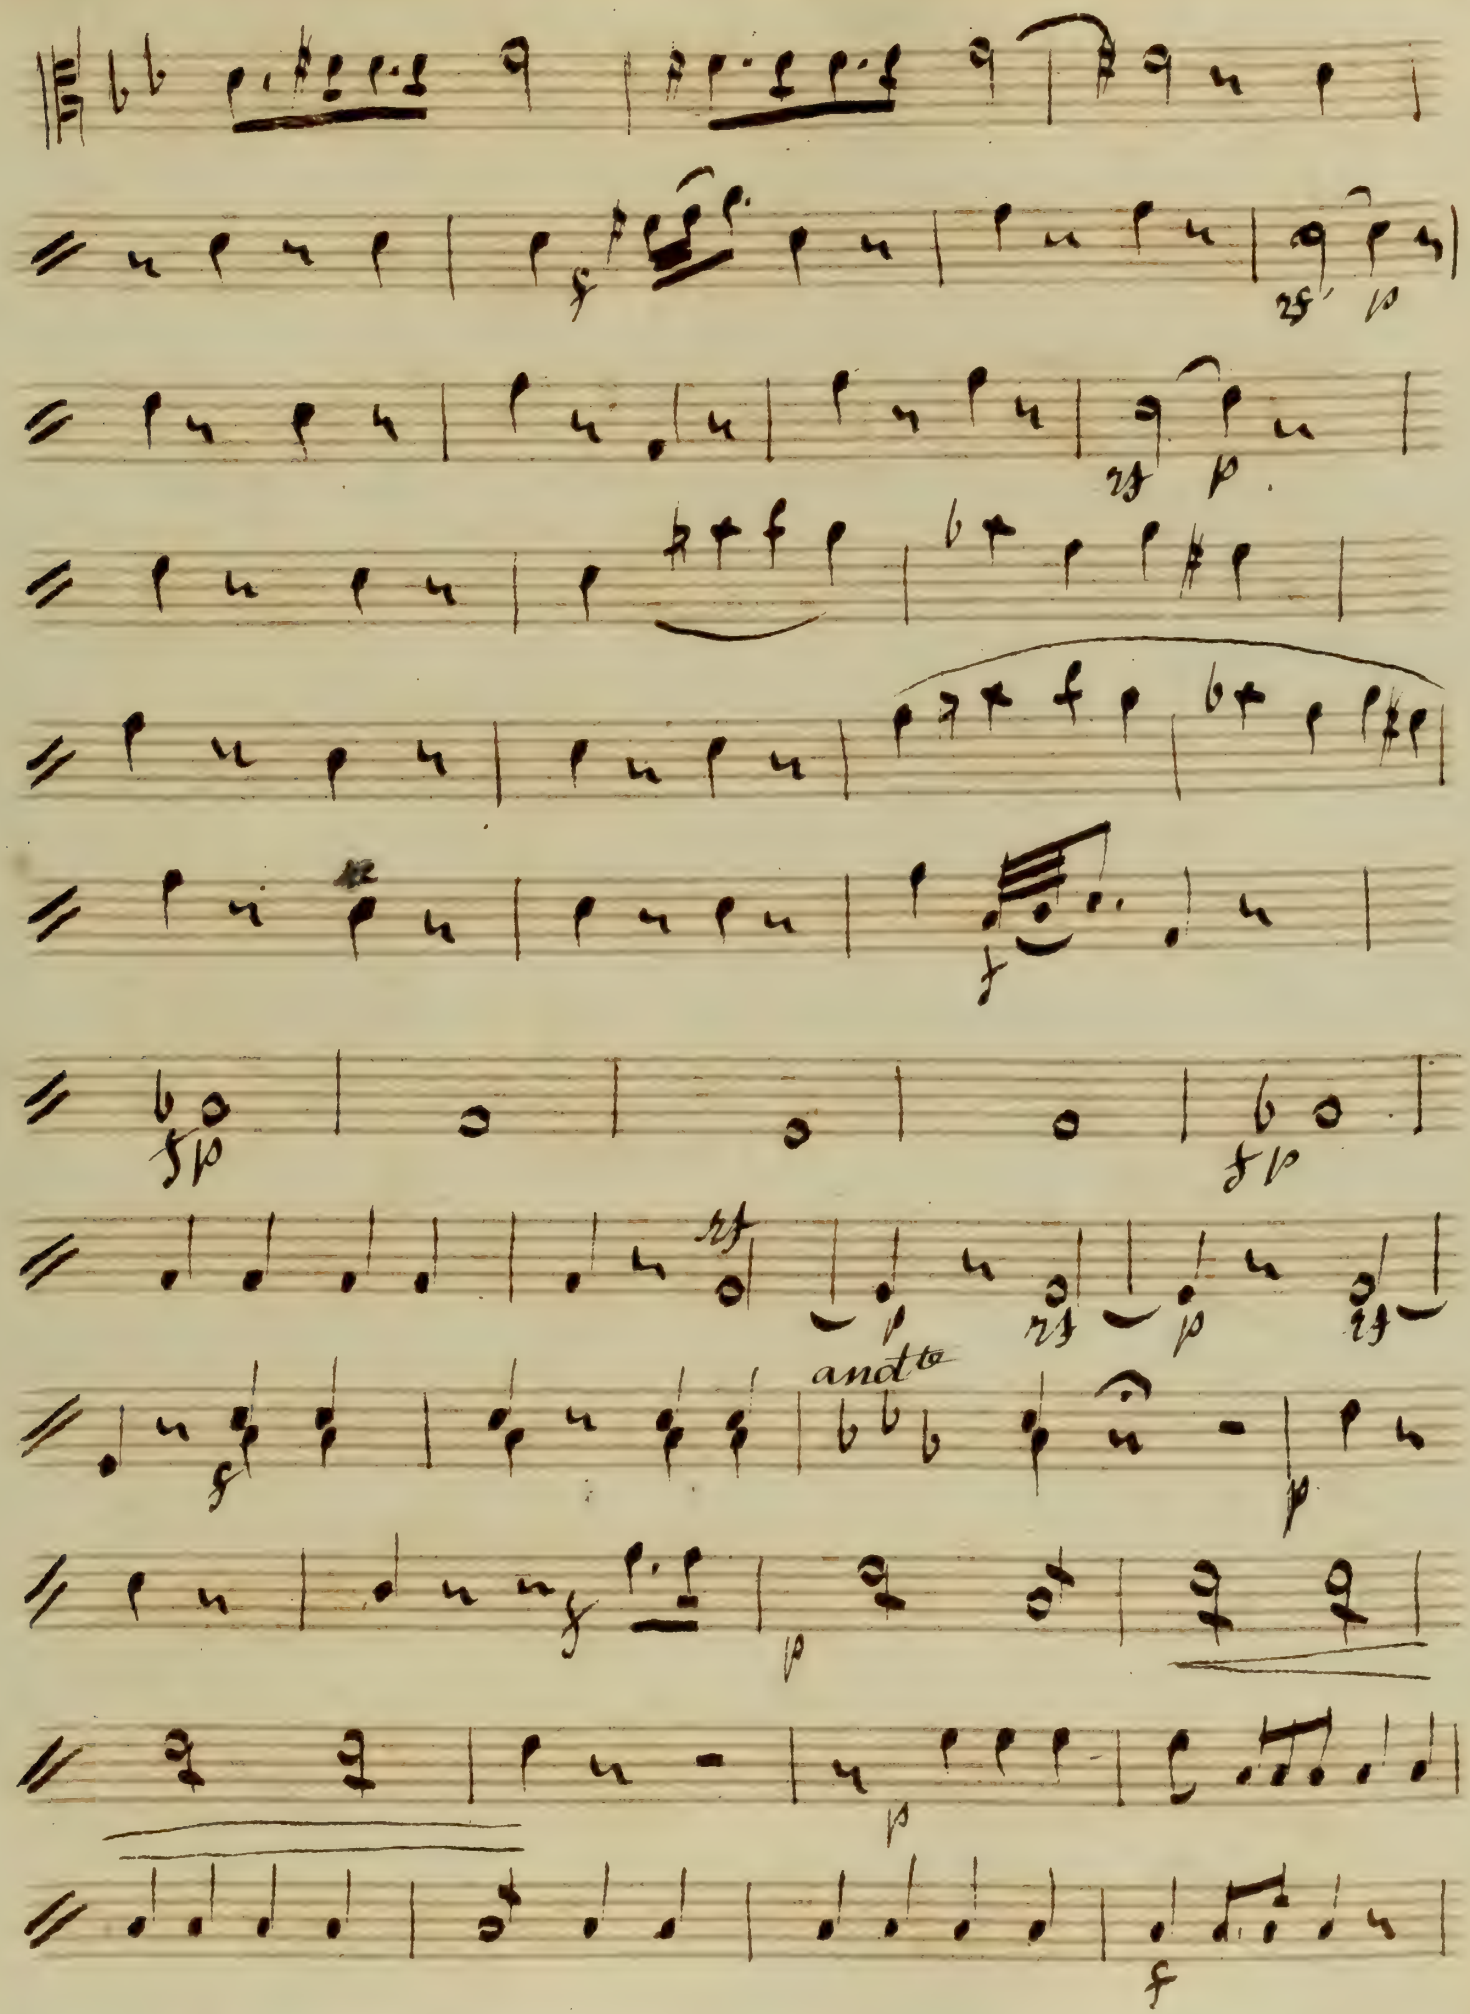 f rf p
rf p
f
fp fp
rf
p rf p rf
andte
f p
f p
p
f